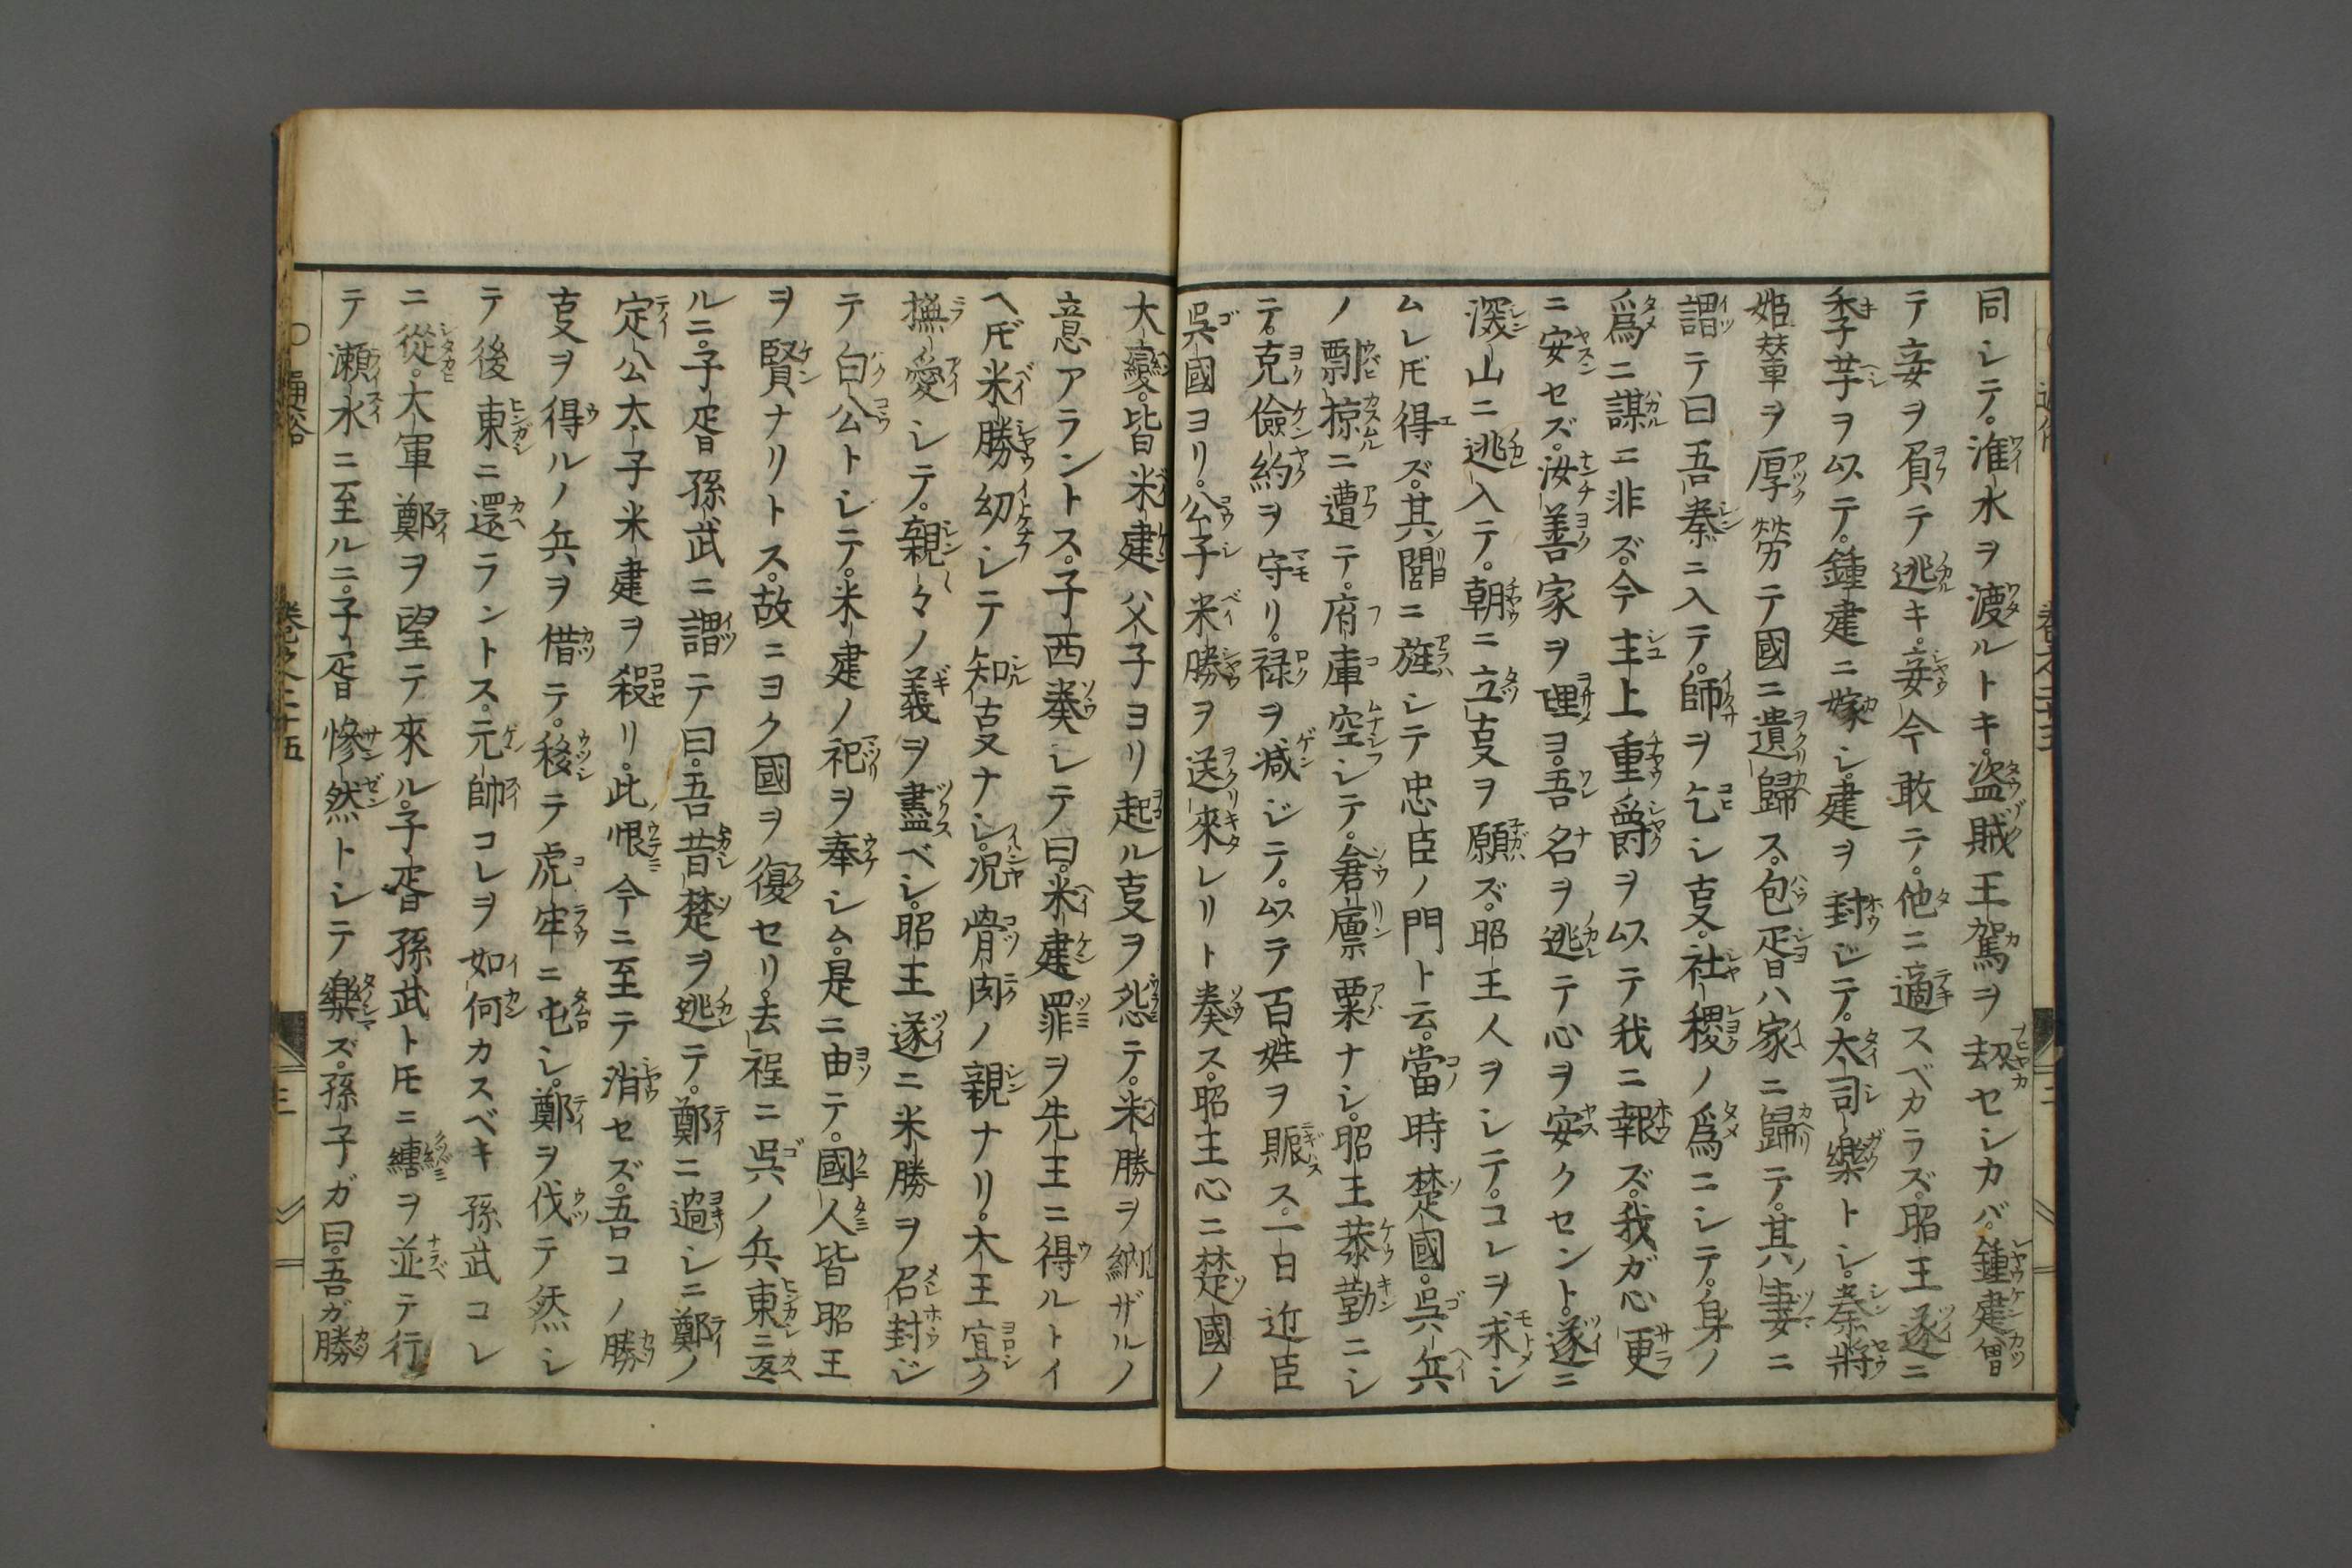 同シテ。淮水ヲ渡ルトキ。盗賊王駕ヲ刧セシカバ。鍾建曽
テ妾ヲ負テ逃キ。妾今敢テ。他ニ適スベカラズ。昭王遂ニ
季芋ヲ以テ。鍾建ニ嫁シ。建ヲ封ジテ。太司樂トシ。秦將
姫輦ヲ厚勞テ國ニ遺歸ス。包胥ハ家ニ歸テ。其妻ニ
謂テ曰吾秦ニ入テ。師ヲ乞シ㕝。社稷ノ爲ニシテ。身ノ
爲ニ謀ニ非ズ。今主上重爵ヲ以テ我ニ報ズ。我ガ心更
ニ安セズ。汝善家ヲ理ヨ。吾名ヲ逃テ心ヲ安クセント。遂ニ
深山ニ逃入テ。朝ニ立㕝ヲ願ズ。昭王人ヲシテ。コレヲ求シ
ムレ𪜈得ズ。其閭ニ旌シテ忠臣ノ門ト云。當時楚國。呉兵
ノ剽掠ニ遭テ。府庫空シテ。倉廪粟ナシ。昭王恭勤ニシ
テ。克儉約ヲ守リ。禄ヲ減ジテ。以テ百姓ヲ賑ス。一日近臣
呉國ヨリ。公子米勝ヲ送來レリト奏ス。昭王心ニ楚國ノ
大變。皆米建父子ヨリ起ル㕝ヲ怨テ。米勝ヲ納ザルノ
意アラントス。子西奏シテ曰。米建罪ヲ先王ニ得ルトイ
ヘ𪜈米勝幼シテ知㕝ナシ。况骨肉ノ親ナリ。太王宜ク
撫愛シテ。親々ノ義ヲ盡ベシ。昭王遂ニ米勝ヲ召封ジ
テ白公トシテ。米建ノ祀ヲ奉シム。是ニ由テ。國人皆昭王
ヲ賢ナリトス。故ニヨク國ヲ復セリ。去程ニ呉ノ兵東ニ返
ルニ。子胥孫武ニ謂テ曰。吾昔楚ヲ逃テ。鄭ニ過シニ鄭ノ
定公太子米建ヲ殺リ。此恨今ニ至テ消セズ。吾コノ勝
㕝ヲ得ルノ兵ヲ借テ。移テ虎牢ニ屯シ。鄭ヲ伐テ然シ
テ後東ニ還ラントス。元帥コレヲ如何カスベキ孫武コレ
ニ從。大軍鄭ヲ望テ來ル。子胥孫武トモニ轡ヲ並テ行
テ瀬水ニ至ルニ。子胥慘然トシテ樂ズ。孫子ガ曰。吾ガ勝
卷之二十五
三